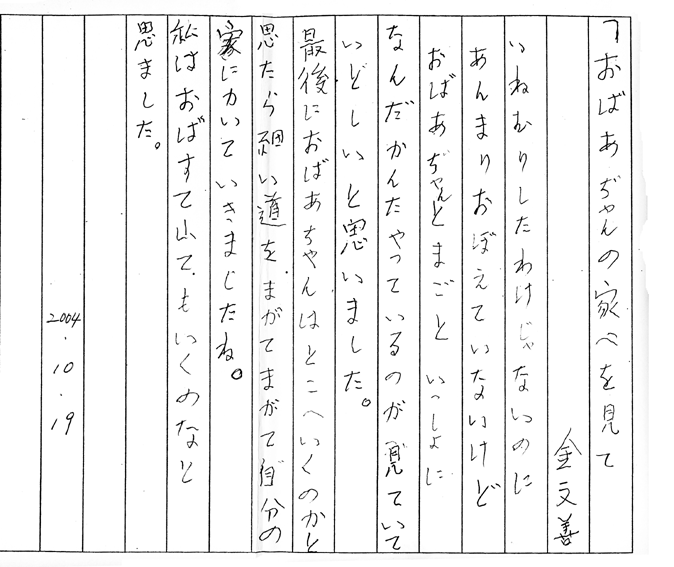 「おばあぢゃんの家へを見て
金文善
いねむりしたわけじゃないのに
あんまりおぼえていないけど
おばあぢゃんとまごと いっしょに
なんだかんたやっているのが見ていて
いどしいと思いました。
最後におばあちゃんはとこへいくのかと
思たら細い道をまがてまがて自分の
家にかいていきまじたね。
私はおばすて山てもいくのなと
思ました。
2004.10.19